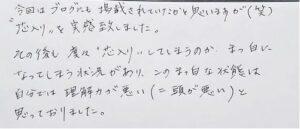 今回はブログにも掲載されていたかと思いますが(笑)
"恋入り"を実感致しました。
その後も度々"恋入り"してしまうのか、まっ白に
なってしまう状況があり、このまっ白な状態は
自分では理解力が悪い(=頭が悪い)と
思っておりました。